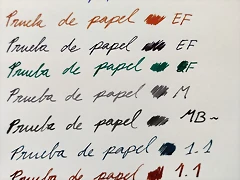 Prueba de papel EF
Prueba de papel EF
Prueba de papel F
Prueba de papel M
Prueba de papel MB~
Prueba de papel 1.1
Prueba de papel 1.1